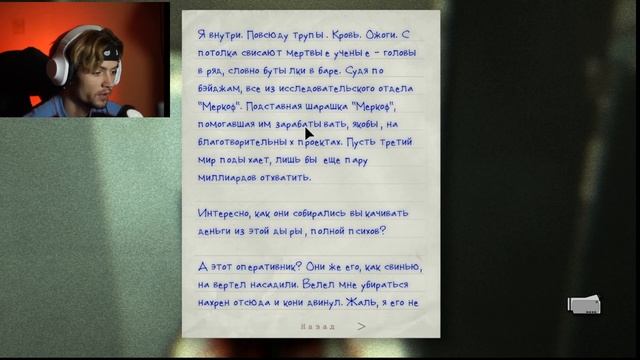 Я внутри. Повсюду трупы. Кровь. Ожоги. С
потолка свисают мертвые ученые - головы
в ряд, словно бутылки в баре. Судя по
бэйджам, все из исследовательского отдела
"Меркоф". Подставная шарашка "Меркоф",
помогавшая им зарабатывать, якобы, на
благотворительных проектах. Пусть третий
мир подыхает, лишь бы еще пару
миллиардов отхватить.
Интересно, как они собирались выкачивать
деньги из этой дыры, полной психов?
А этот оперативник? Они же его, как свинью,
на вертел насадили. Велел мне убираться
нахрен отсюда и кони двинул. Жаль, я его не
Назад >